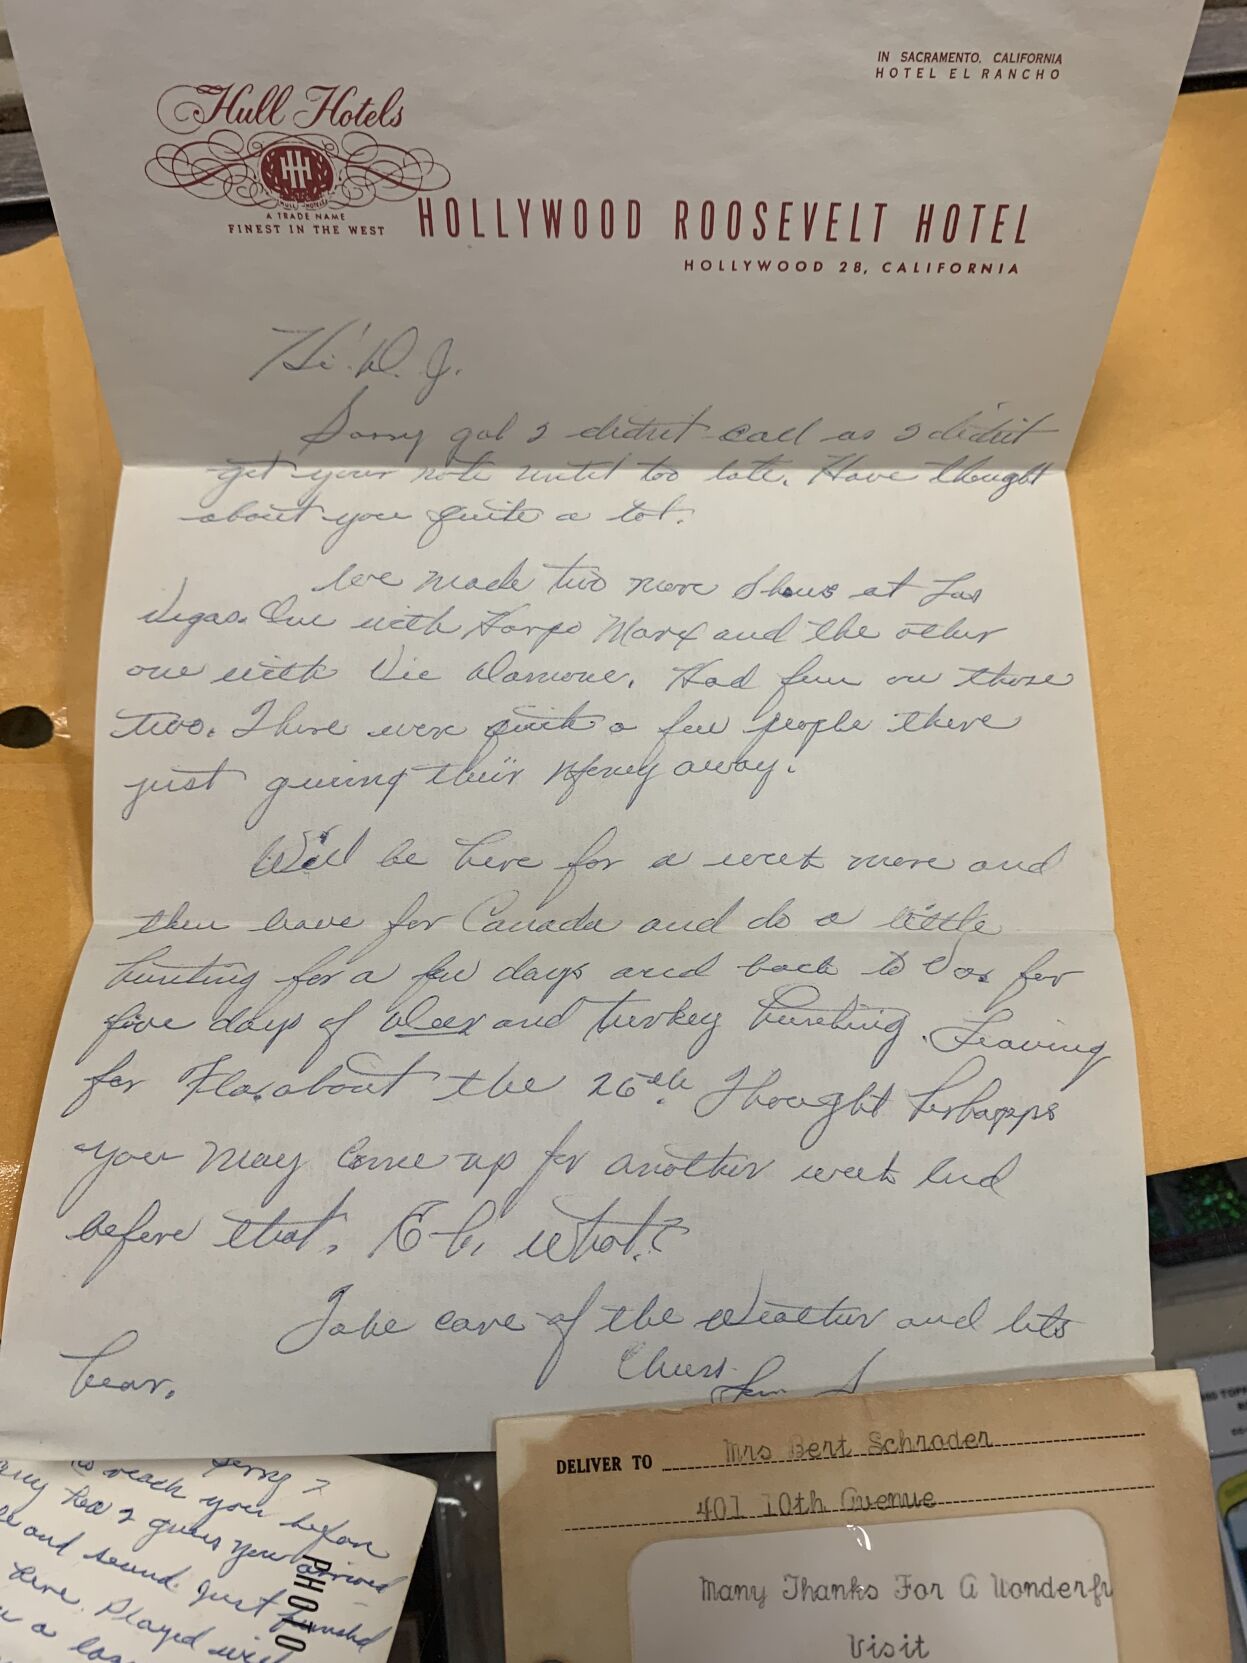 IN SACRAMENTO, CALIFORNIA
HOTEL EL RANCHO
Hull Hotels
HH
HULL HOTELS
A TRADE NAME
FINEST IN THE WEST
HOLLYWOOD ROOSEVELT HOTEL
HOLLYWOOD 28, CALIFORNIA
Hi D. J.
Sorry gal I didn't call as I didn't
get your note until too late. Have thought
about you quite a lot.
We made two more shows at Las
Vegas. One with Harpo Marx and the other
one with Vic Damone. Had fun on those
two. There were quite a few people there
just giving their Money away.
Will be here for a week more and
then leave for Canada and do a little
hunting for a few days and back to for
five days of Deer and turkey hunting. Leaving
for Fla. about the 26th. Thought Perhapps
you may come up for another week End
before that. Eh, what?
Take care of the Weather and lets
hear.
Cheers
Sam S
DELIVER TO Mrs Bert Schrader
401 10th Avenue
Many Thanks For A Wonderfu
Visit
Sorry I
to reach you before
Rex I guess you arrived
and sound. Just finished
here. Played with
a
PHOTO